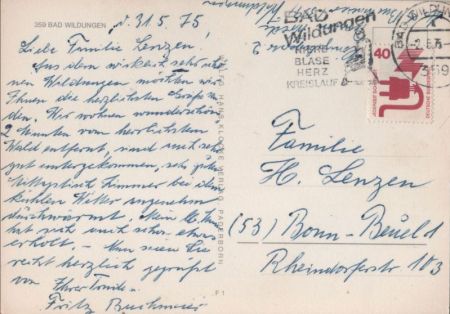 359 BAD WILDUNGEN
d. 31.5.75
Liebe Familie Lenzen!
Aus dem wirklich sehr schö-
nen Wildungen möchten wir
Ihnen die herzlichsten Grüße sen-
den. Wir wohnen wunderschön
2 Minuten vom herrlichsten
Wald entfernt, sind auch sehr
gut untergekommen, sehr gutes
Zimmer bei dem
kühlen Wetter angenehm
durchwärmt. Mein M.
hat sich auch schon etwas
erholt. - Nun seien Sie
recht herzlich gegrüßt
von
Ihrer
Fritz
BAD
Wildungen
NIERE
BLASE
HERZ
KREISLAUF
BAD WILDUNGEN
-2.6.75
359
40
DEUTSCHE BUNDESPOST
VERLAG PADERBORN
Familie
H. Lenzen
(53) Bonn-Beuel 1
Rheindorferstr 103